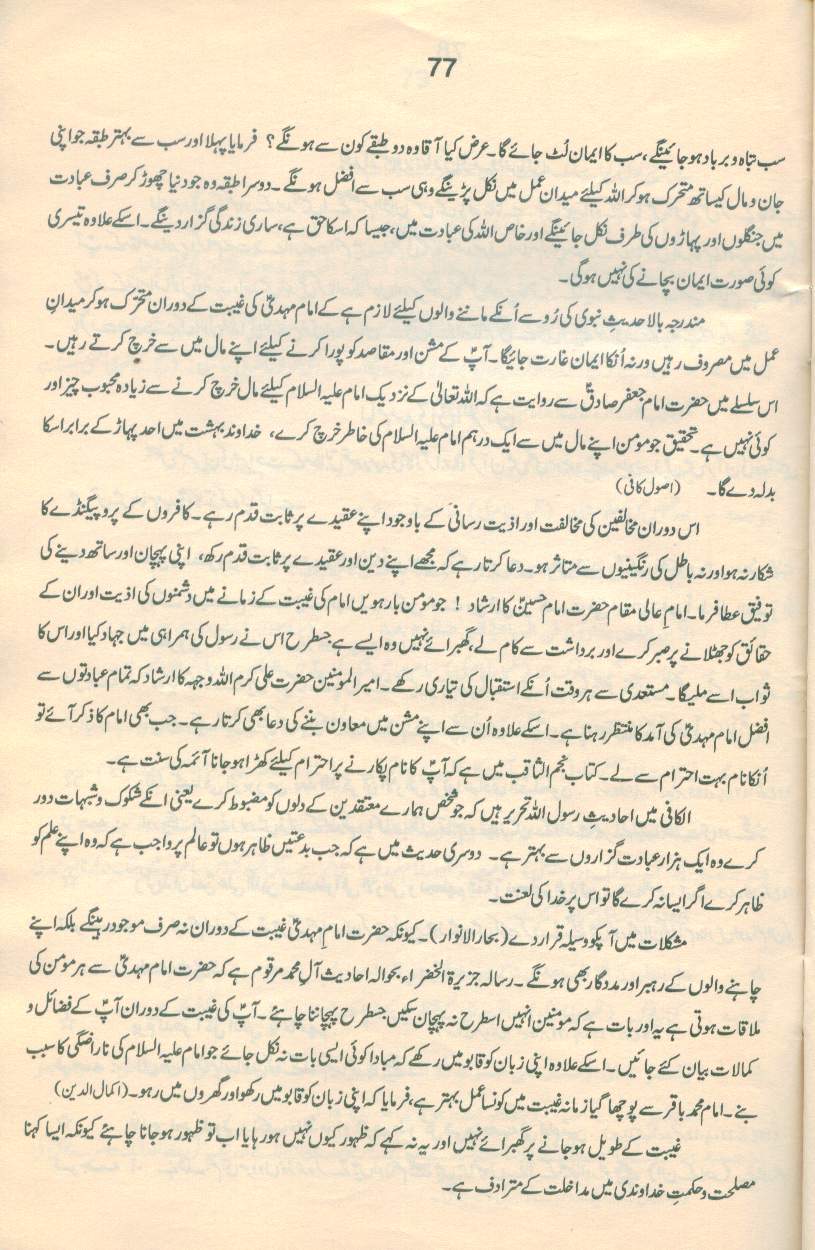 77
سب تباہ و برباد ہو جائینگے، سب کا ایمان لُٹ جائے گا۔ عرض کیا آقا وہ دو طبقے کون سے ہونگے؟ فرمایا پہلا اور سب سے بہتر طبقہ جو اپنی
جان و مال کیساتھ متحرک ہو کر اللہ کیلئے میدان عمل میں نکل پڑینگے وہی سب سے افضل ہونگے۔ دوسرا طبقہ وہ جو دنیا چھوڑ کر صرف عبادت
میں جنگلوں اور پہاڑوں کی طرف نکل جائینگے اور خاص اللہ کی عبادت میں، جیسا کہ اسکا حق ہے، ساری زندگی گزار دینگے۔ اسکے علاوہ تیسری
کوئی صورت ایمان بچانے کی نہیں ہوگی۔
مندرجہ بالا حدیثِ نبوی کی رُو سے اُنکے ماننے والوں کیلئے لازم ہے کے امام مہدیؑ کی غیبت کے دوران متحرک ہو کر میدانِ
عمل میں مصروف رہیں ورنہ اُنکا ایمان غارت جائیگا۔ آپؑ کے مشن اور مقاصد کو پورا کرنے کیلئے اپنے مال میں سے خرچ کرتے رہیں۔
اس سلسلے میں حضرت امام جعفر صادقؑ سے روایت ہے کہ اللہ تعالیٰ کے نزدیک امام علیہ السلام کیلئے مال خرچ کرنے سے زیادہ محبوب چیز اور
کوئی نہیں ہے۔ تحقیق جو مومن اپنے مال میں سے ایک درہم امام علیہ السلام کی خاطر خرچ کرے، خداوند بہشت میں احد پہاڑ کے برابر اسکا
بدلہ دے گا۔ (اصول کافی)
اس دوران مخالفین کی مخالفت اور اذیت رسانی کے باوجود اپنے عقیدے پر ثابت قدم رہے۔ کافروں کے پروپیگنڈے کا
شکار نہ ہو اور نہ باطل کی رنگینیوں سے متاثر ہو۔ دعا کرتا رہے کہ مجھے اپنے دین اور عقیدے پر ثابت قدم رکھ، اپنی پہچان اور ساتھ دینے کی
توفیق عطا فرما۔ امامِ عالی مقام حضرت امام حسینؑ کا ارشاد ! جو مومن بارہویں امام کی غیبت کے زمانے میں دشمنوں کی اذیت اور ان کے
حقائق کو جھٹلانے پر صبر کرے اور برداشت سے کام لے، گھبرائے نہیں وہ ایسے ہے جسطرح اس نے رسول کی ہمراہی میں جہاد کیا اور اس کا
ثواب اسے ملیگا۔ مستعدی سے ہر وقت اُنکے استقبال کی تیاری رکھے۔ امیر المومنین حضرت علی کرم اللہ وجہہ کا ارشاد کہ تمام عبادتوں سے
افضل امام مہدیؑ کی آمد کا منتظر رہنا ہے۔ اسکے علاوہ اُن سے اپنے مشن میں معاون بننے کی دعا بھی کرتا رہے۔ جب بھی امام کا ذکر آئے تو
اُنکا نام بہت احترام سے لے۔ کتاب نجم الثاقب میں ہے کہ آپؑ کا نام پکارنے پر احترام کیلئے کھڑا ہو جانا آئمہ کی سنت ہے۔
الکافی میں احادیثِ رسول اللہ تحریر ہیں کہ جو شخص ہمارے معتقدین کے دلوں کو مضبوط کرے یعنی انکے شکوک و شبہات دور
کرے وہ ایک ہزار عبادت گزاروں سے بہتر ہے۔ دوسری حدیث میں ہے کہ جب بدعتیں ظاہر ہوں تو عالم پر واجب ہے کہ وہ اپنے علم کو
ظاہر کرے اگر ایسا نہ کرے گا تو اس پر خدا کی لعنت۔
مشکلات میں آپکو وسیلہ قرار دے (بحار الانوار)۔ کیونکہ حضرت امام مہدیؑ غیبت کے دوران نہ صرف موجود رہینگے بلکہ اپنے
چاہنے والوں کے رہبر اور مددگار بھی ہونگے۔ رسالہ جزیرۃ الخضراء بحوالہ احادیث آلِ محمد مرقوم ہے کہ حضرت امام مہدیؑ سے ہر مومن کی
ملاقات ہوتی ہے یہ اور بات ہے کہ مومنین انہیں اسطرح نہ پہچان سکیں جسطرح پہچاننا چاہئے۔ آپؑ کی غیبت کے دوران آپؑ کے فضائل و
کمالات بیان کئے جائیں۔ اسکے علاوہ اپنی زبان کو قابو میں رکھے کہ مبادا کوئی ایسی بات نہ نکل جائے جو امام علیہ السلام کی ناراضگی کا سبب
بنے۔ امام محمد باقر سے پوچھا گیا زمانہ غیبت میں کونسا عمل بہتر ہے، فرمایا کہ اپنی زبان کو قابو میں رکھو اور گھروں میں رہو۔ (اکمال الدین)
غیبت کے طویل ہو جانے پر گھبرائے نہیں اور یہ نہ کہے کہ ظہور کیوں نہیں ہو رہا یا اب تو ظہور ہو جانا چاہئے کیونکہ ایسا کہنا
مصلحت و حکمتِ خداوندی میں مداخلت کے مترادف ہے۔